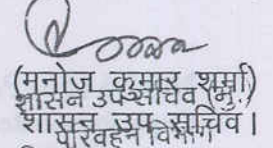 (मनोज कुमार शर्मा)
शासन उप सचिव (मु.)
शासन उप सचिव ।
परिवहन विभाग